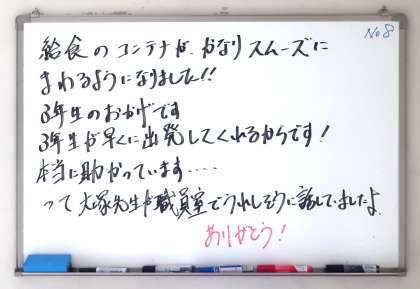 No8
給食のコンテナが、かなりスムーズに
まわるようになりました!!
3年生のおかげです
3年生が早くに出発してくれるからです!
本当に助かっています....
って大塚先生が職員室でうれしそうに話していましたよ。
ありがとう!